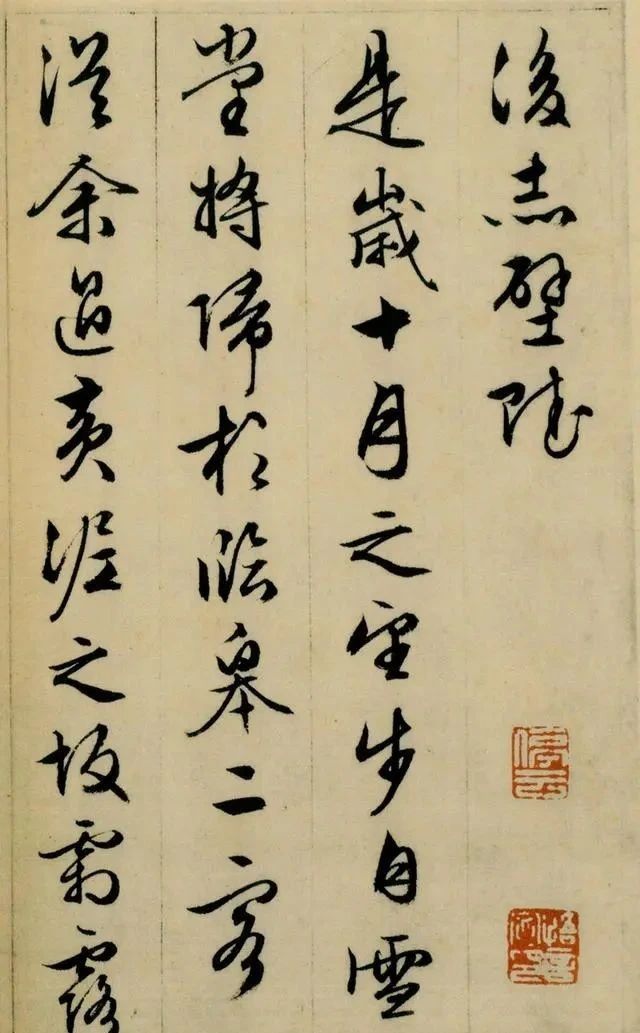 後赤壁賦
是歲十月之望步自雪
堂將歸於臨皋二客
從余過黃泥之坂霜露
停雲